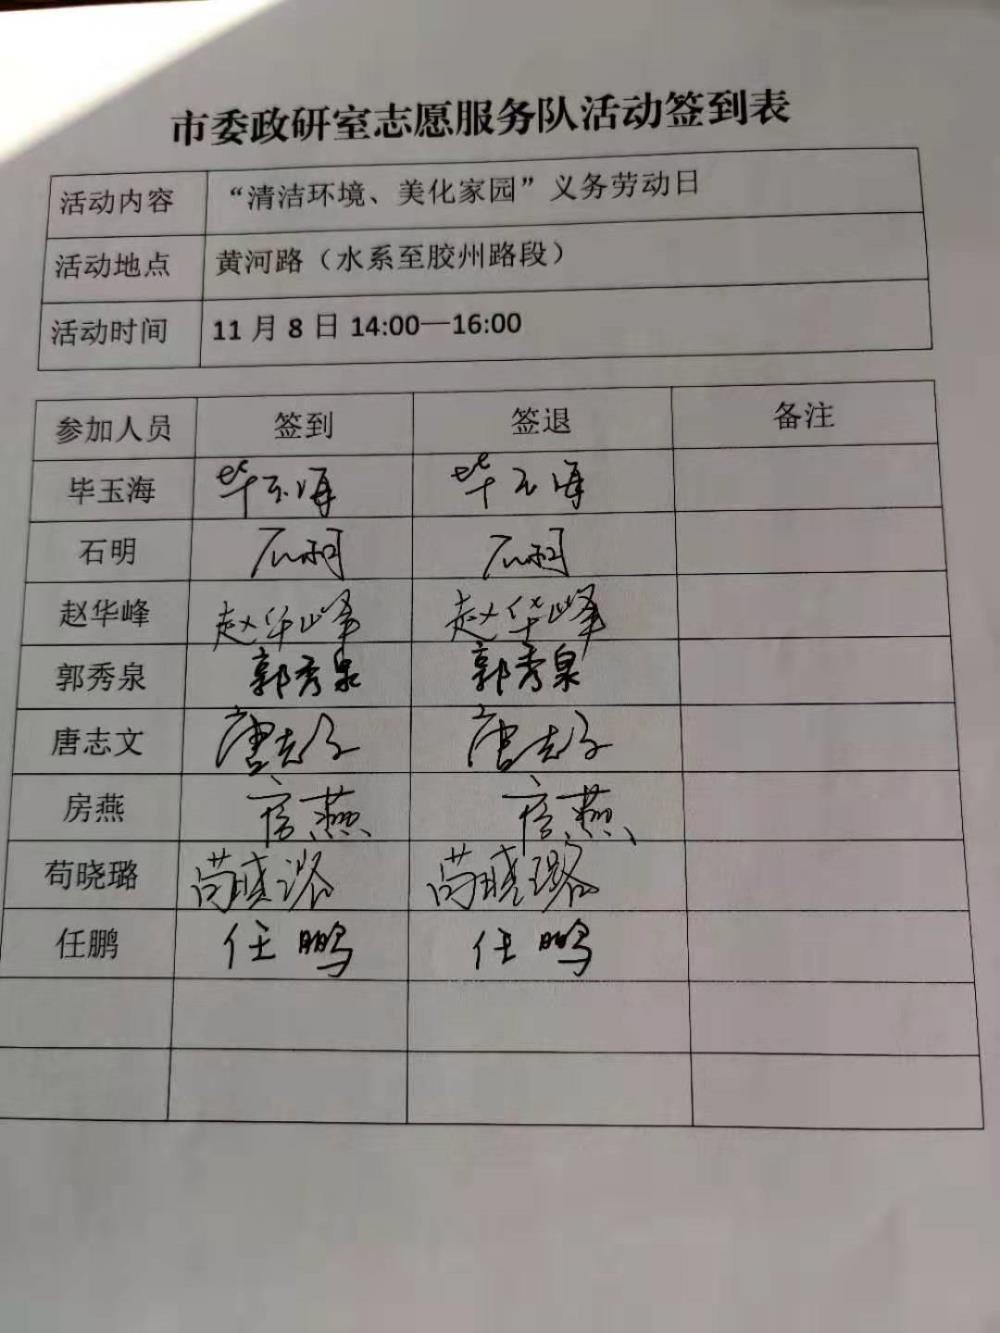 市委政研室志愿服务队活动签到表
活动内容 “清洁环境、美化家园”义务劳动日
活动地点 黄河路（水系至胶州路段）
活动时间 11月8日14:00—16:00
参加人员 签到 签退 备注
毕玉海 毕玉海 毕玉海
石明
赵华峰 赵华峰 赵华峰
郭秀泉 郭秀泉 郭秀泉
唐志文 唐志文 唐志文
房燕 房燕 房燕
苟晓璐 苟晓璐 苟晓璐
任鹏 任鹏 任鹏